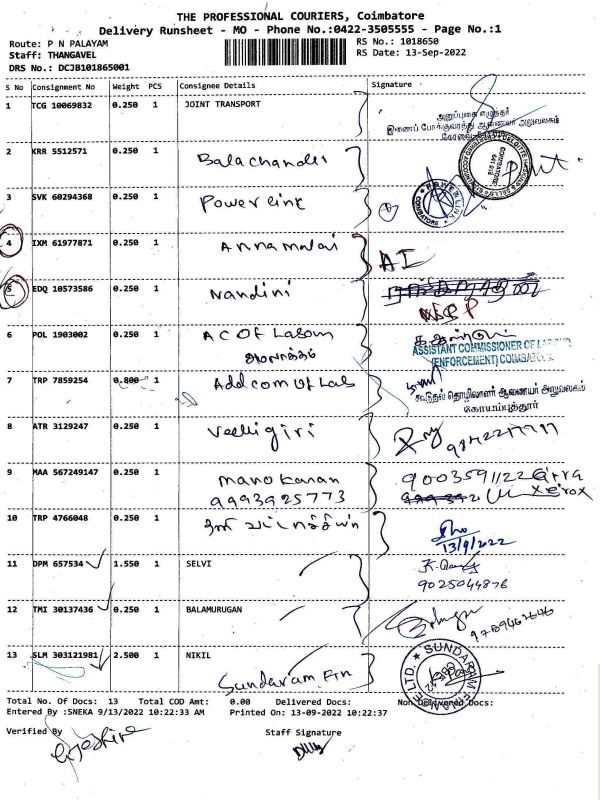 THE PROFESSIONAL COURIERS, Coimbatore
Delivery Runsheet - MO - Phone No.:0422-3505555 - Page No.:1
Route: P N PALAYAM
RS No.: 1018650
Staff: THANGAVEL
RS Date: 13-Sep-2022
DRS No.: DCJB101865001
S No Consignment No Weight PCS Consignee Details Signature
1 TCG 10069832 0.250 1 JOINT TRANSPORT
அனுப்புகை எழுத்தர்
இணைப் போக்குவரத்து ஆணையர் அலுவலகம்
2 KRR 5512571 0.250 1 Balachander
3 SVK 60294368 0.250 1 Power link
POWERLINK
COIMBATORE
4 IXM 61977871 0.250 1 Annamalai AI
5 EDQ 10573586 0.250 1 Nandini
6 POL 1903002 0.250 1 A C OF Labour
ASSISTANT COMMISSIONER OF LABOUR
(ENFORCEMENT) COIMBATORE
7 TRP 7859254 0.800 1 Addcom of Lab
கூடுதல் தொழிலாளர் ஆணையர் அலுவலகம்
கோயம்புத்தூர்
8 ATR 3129247 0.250 1 Velligiri
9 MAA 567249147 0.250 1 Manokaran 9003591122
9993925773 Xerox
10 TRP 4766048 0.250 1
13/9/2022
11 DPM 657534 1.550 1 SELVI
9025044876
12 TMI 30137436 0.250 1 BALAMURUGAN
9789462646
13 SLM 303121981 2.500 1 NIKIL
Sundaram Fin
SUNDARAM FINANCE LTD.
Total No. Of Docs: 13 Total COD Amt: 0.00 Delivered Docs: Non Delivered Docs:
Entered By :SNEKA 9/13/2022 10:22:33 AM Printed On: 13-09-2022 10:22:37
Verified By Staff Signature